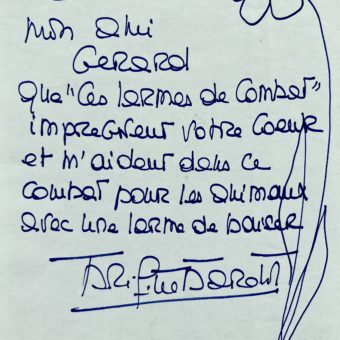 mon ami
GERARD
que "Ces larmes de combat"
impregnent votre coeur
et m'aident dans ce
combat pour les animaux
avec une larme de baiser
Brigitte Bardot